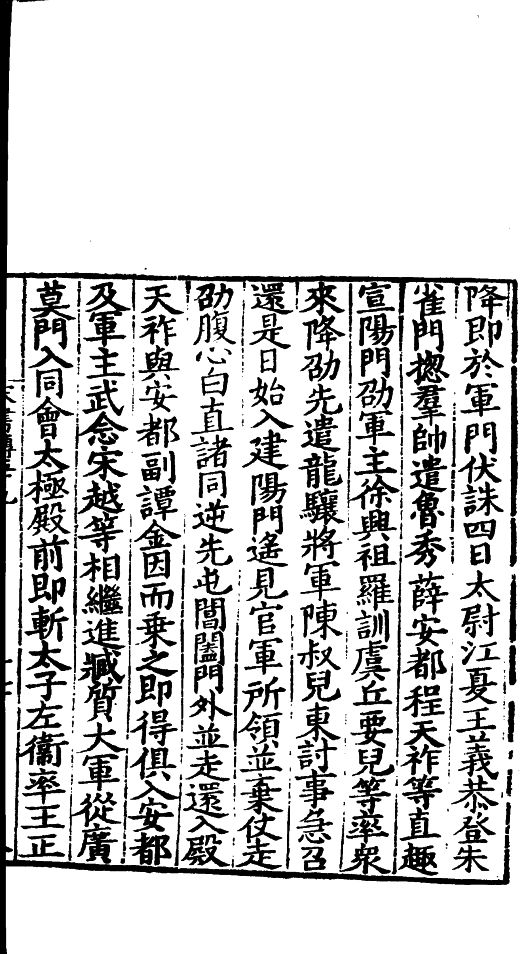 降即於軍門伏誅四日太尉江夏王義恭登朱
雀門揔羣帥遣魯秀薛安都程天祚等直趣
宣陽門劭軍主徐興祖羅訓虞丘要兒等率衆
來降劭先遣龍驤將軍陳叔兒東討事急召
還是日始入建陽門遙見官軍所領並棄仗走
劭腹心白直諸同逆先屯閶闔門外並走還入殿
天祚與安都副譚金因而乗之即得俱入安都
及軍主武念宋越等相繼進臧質大軍從廣
莫門入同會太極殿前即斬太子左衞率王正